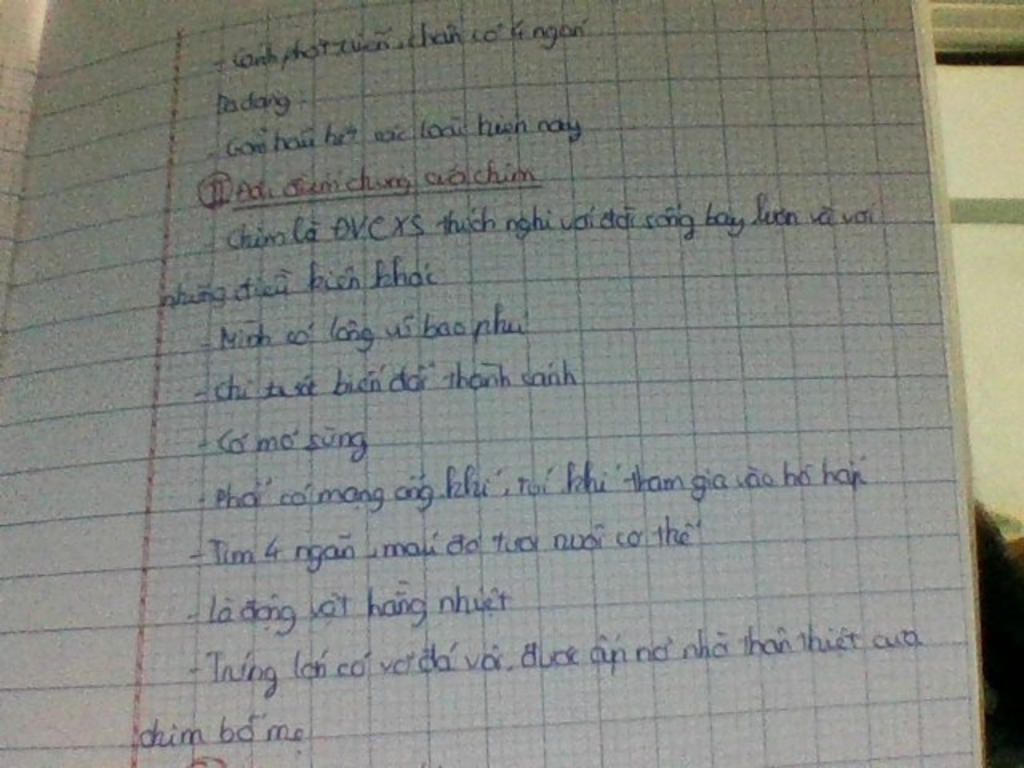 - Cánh phát triển, chân có 4 ngón
Đa dạng:
- Gồm hầu hết các loài hiện nay
II Đặc điểm chung của chim
Chim là ĐVCXS thích nghi với đời sống bay lượn và với
những điều kiện khác
- Mình có lông vũ bao phủ
- Chi trước biến đổi thành cánh
- Có mỏ sừng
- Phổi có mạng ống khí, túi khí tham gia vào hô hấp
- Tim 4 ngăn, máu đỏ tươi nuôi cơ thể
- Là động vật hằng nhiệt
- Trứng lớn có vỏ đá vôi, được ấp nở nhờ thân nhiệt của
chim bố mẹ